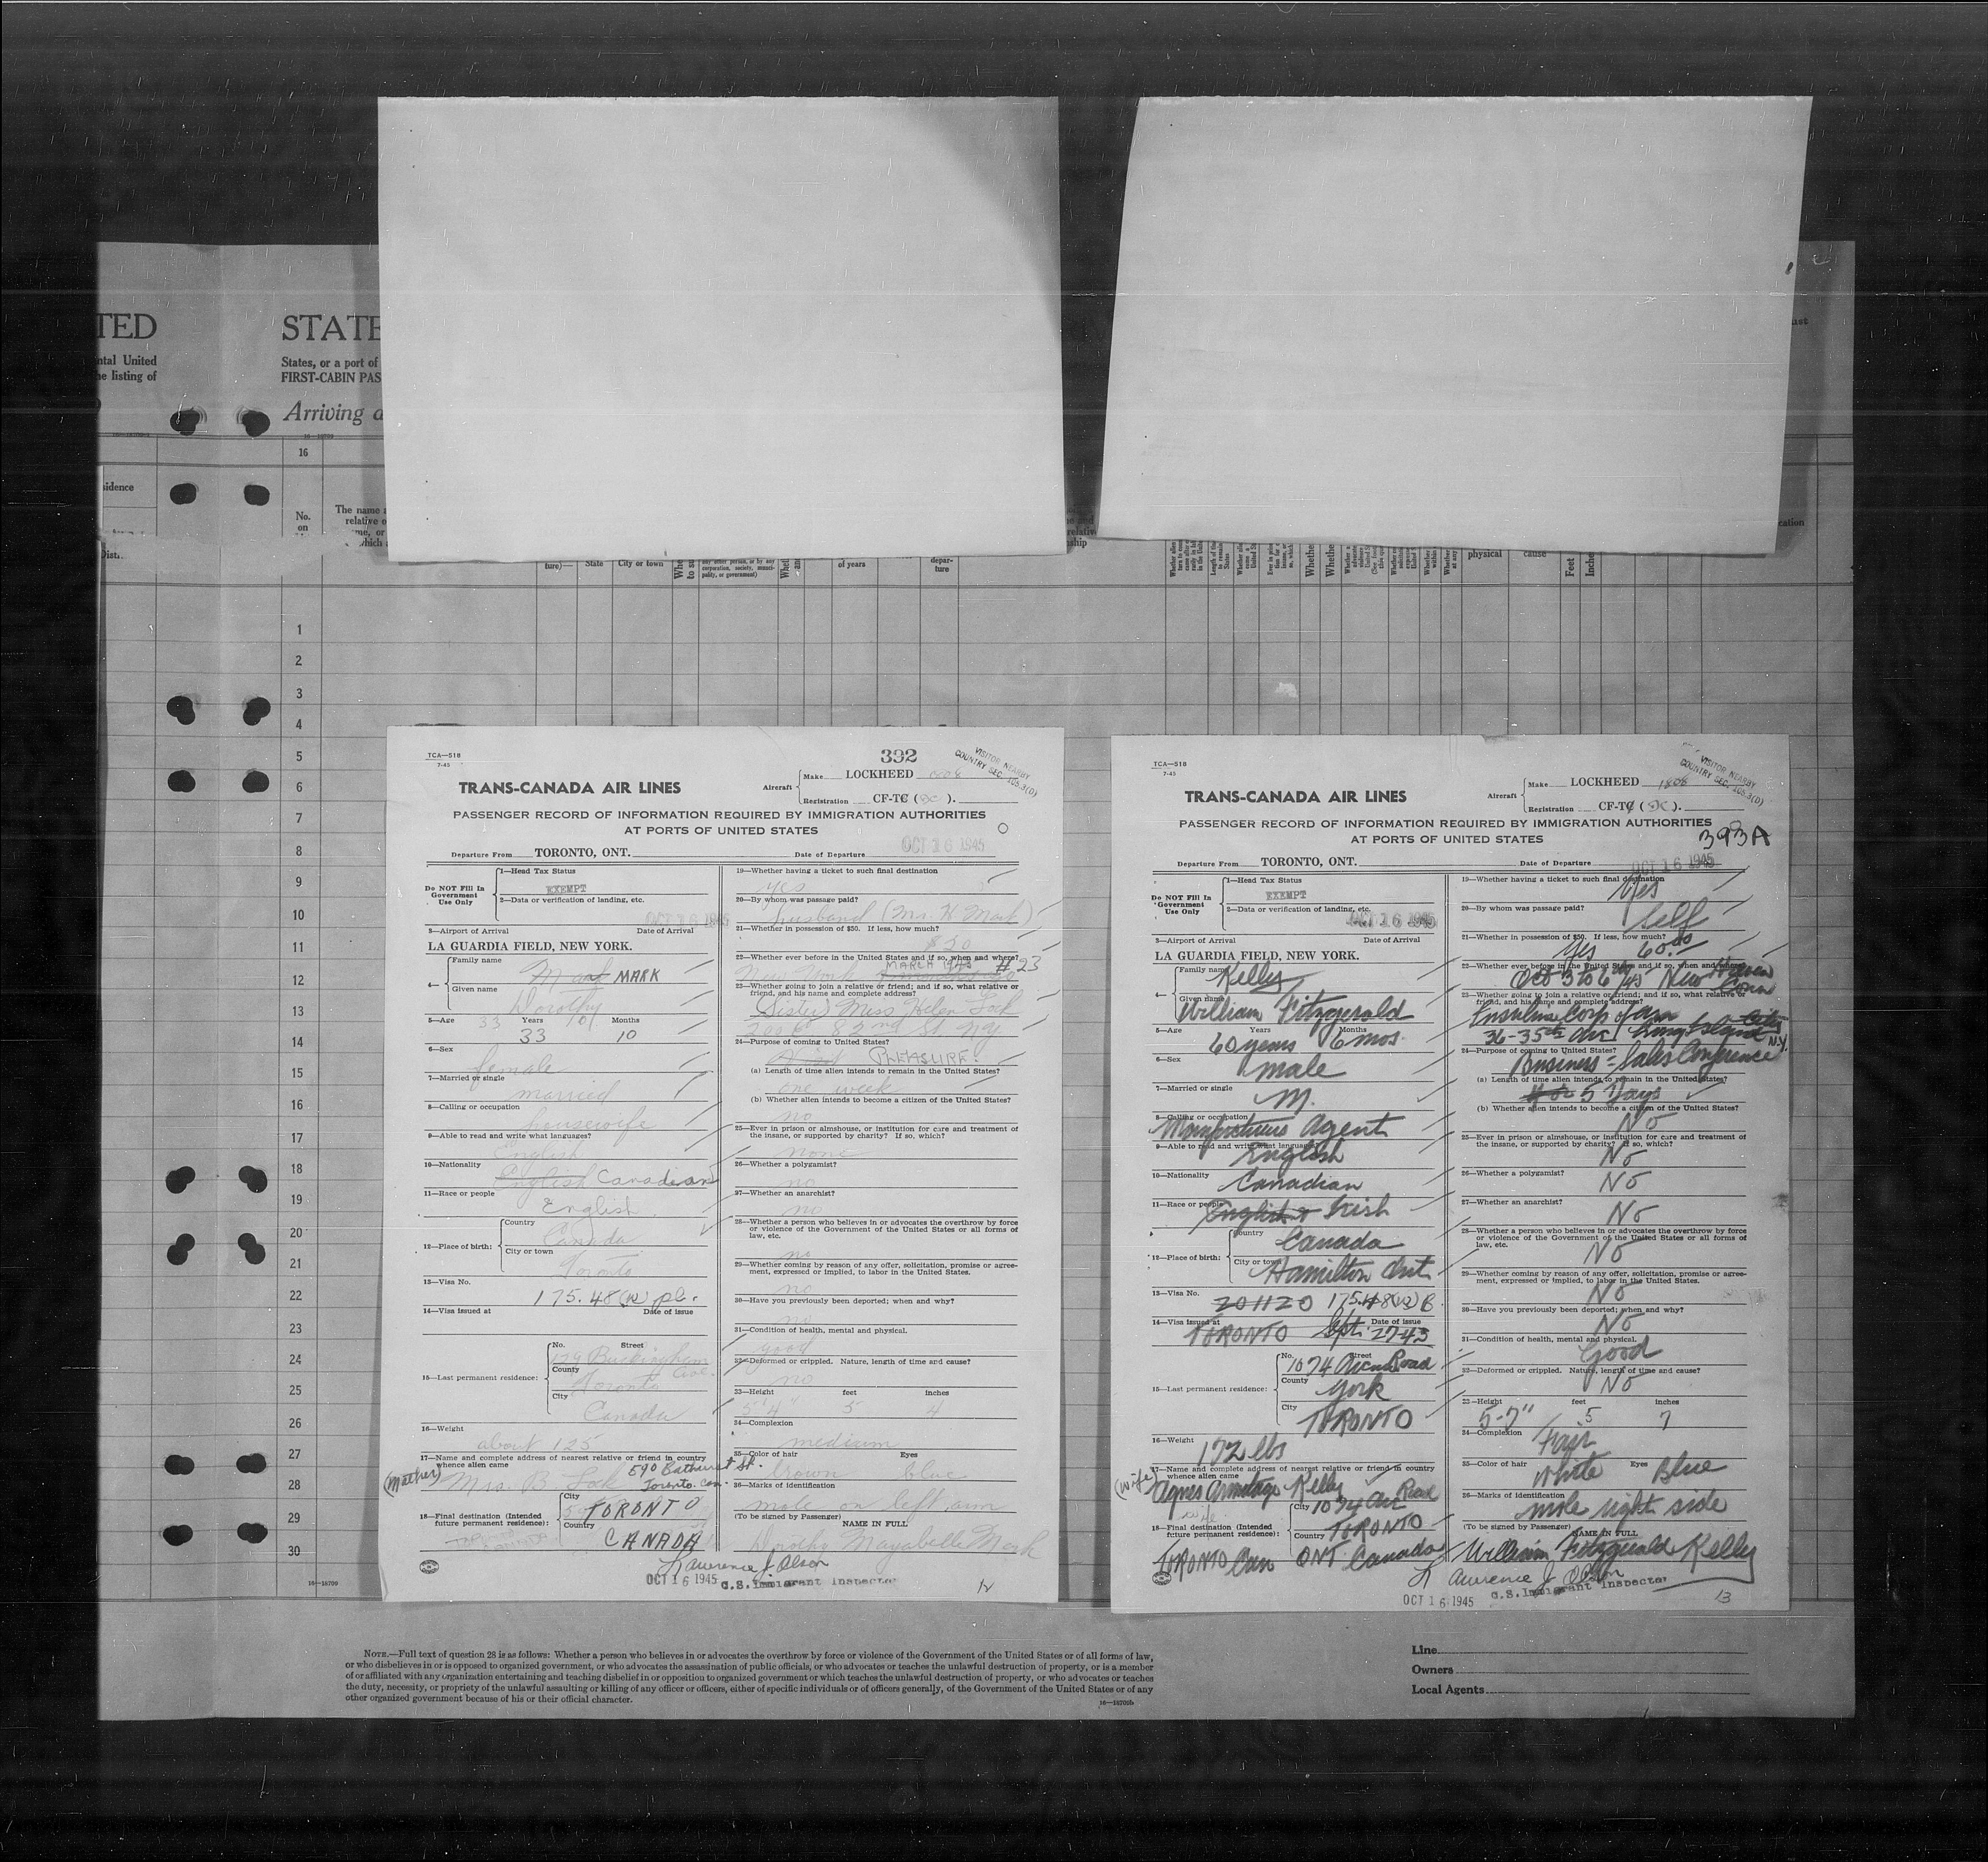 TED STATE
ntal United States, or a port of
e listing of FIRST-CABIN PAS
Arriving a
16—18709
16
sidence
No.
on
The name
relative o
me, or
which
Dist.
ture)—
State
City or town
any other person, or by any
corporation, society, munici-
pality, or government)
of years
depar-
ture
relative
ship
physical
cause
Feet
Inche
cation
1
2
3
4
5
6
7
8
9
10
11
12
13
14
15
16
17
18
19
20
21
22
23
24
25
26
27
28
29
30
16—18709
TCA—518
7-45
392
VISITOR NEARBY
COUNTRY SEC. 165.3(D)
TRANS-CANADA AIR LINES
Aircraft
Make LOCKHEED 1808
Registration CF-TC ( ).
PASSENGER RECORD OF INFORMATION REQUIRED BY IMMIGRATION AUTHORITIES
AT PORTS OF UNITED STATES
OCT 16 1945
Departure From TORONTO, ONT. Date of Departure
Do NOT Fill In
Government
Use Only
1—Head Tax Status
EXEMPT
2—Data or verification of landing, etc.
OCT 16 1945
3—Airport of Arrival Date of Arrival
LA GUARDIA FIELD, NEW YORK.
4—
Family name
Mark MARK
Given name
Dorothy
5—Age Years Months
33 10
33 10
6—Sex
female
7—Married or single
married
8—Calling or occupation
housewife
9—Able to read and write what languages?
English
10—Nationality
English Canadian
11—Race or people
English
12—Place of birth:
Country
Canada
City or town
Toronto
13—Visa No.
175.48(12) pb.
14—Visa issued at Date of issue
15—Last permanent residence:
No. Street
129 Buckingham
Ave.
County
Toronto
City
Canada
16—Weight
about 125
17—Name and complete address of nearest relative or friend in country
whence alien came
(Mother) Mrs. B. 590 Bathurst St.
Toronto. Can.
18—Final destination (Intended
future permanent residence):
City
TORONTO
Country
CANADA
19—Whether having a ticket to such final destination
yes
20—By whom was passage paid?
husband (Mr. H. Mark)
21—Whether in possession of $50. If less, how much?
$50
22—Whether ever before in the United States and if so, when and where?
New York MARCH 1943 #23
23—Whether going to join a relative or friend; and if so, what relative or
friend, and his name and complete address?
(Sister) Miss Helen
82nd St. N.Y.
24—Purpose of coming to United States?
PLEASURE.
(a) Length of time alien intends to remain in the United States?
one week
(b) Whether alien intends to become a citizen of the United States?
no
25—Ever in prison or almshouse, or institution for care and treatment of
the insane, or supported by charity? If so, which?
none
26—Whether a polygamist?
no
27—Whether an anarchist?
no
28—Whether a person who believes in or advocates the overthrow by force
or violence of the Government of the United States or all forms of
law, etc.
no
29—Whether coming by reason of any offer, solicitation, promise or agree-
ment, expressed or implied, to labor in the United States.
no
30—Have you previously been deported; when and why?
no
31—Condition of health, mental and physical.
good
32—Deformed or crippled. Nature, length of time and cause?
no
33—Height feet inches
5'4" 5 4
34—Complexion
medium
35—Color of hair Eyes
brown blue
36—Marks of identification
mole on left arm
(To be signed by Passenger) NAME IN FULL
Dorothy Mayabelle Mark
Lawrence J. Olson
OCT 16 1945 U.S. Immigrant Inspector
12
TCA—518
7-45
VISITOR NEARBY
COUNTRY SEC. 165.3(D)
TRANS-CANADA AIR LINES
Aircraft
Make LOCKHEED 1808
Registration CF-TC ( ).
PASSENGER RECORD OF INFORMATION REQUIRED BY IMMIGRATION AUTHORITIES
AT PORTS OF UNITED STATES
393A
Departure From TORONTO, ONT. Date of Departure OCT 16 1945
Do NOT Fill In
Government
Use Only
1—Head Tax Status
EXEMPT
2—Data or verification of landing, etc.
OCT 16 1945
3—Airport of Arrival Date of Arrival
LA GUARDIA FIELD, NEW YORK.
4—
Family name
Kelly
Given name
William Fitzgerald
5—Age Years Months
60 years 6 mos.
6—Sex
male
7—Married or single
M.
8—Calling or occupation
Manufacturers Agent
9—Able to read and write what languages?
English
10—Nationality
Canadian
11—Race or people
English & Irish
12—Place of birth:
Country
Canada
City or town
Hamilton Ont
13—Visa No.
201120 175.48(12) B.
14—Visa issued at Date of issue
TORONTO Spt. 27-43
15—Last permanent residence:
No. Street
1074 Avenue Road
County
York
City
TORONTO
16—Weight
172 lbs
17—Name and complete address of nearest relative or friend in country
whence alien came
(wife) Agnes Armitage Kelly
wife
18—Final destination (Intended
future permanent residence):
City 1074 Ave Road
TORONTO
Country
TORONTO Can ONT. Canada
19—Whether having a ticket to such final destination
Yes
20—By whom was passage paid?
Self
21—Whether in possession of $50. If less, how much?
Yes 60.00
22—Whether ever before in the United States and if so, when and where?
Oct 3 to 6 45 New Haven
Conn
23—Whether going to join a relative or friend; and if so, what relative or
friend, and his name and complete address?
Insuline Corp of Am
36-35th Ave Long Island City
N.Y.
24—Purpose of coming to United States?
Business - Sales Conference
(a) Length of time alien intends to remain in the United States?
4 or 5 Days
(b) Whether alien intends to become a citizen of the United States?
No
25—Ever in prison or almshouse, or institution for care and treatment of
the insane, or supported by charity? If so, which?
No
26—Whether a polygamist?
No
27—Whether an anarchist?
No
28—Whether a person who believes in or advocates the overthrow by force
or violence of the Government of the United States or all forms of
law, etc.
No
29—Whether coming by reason of any offer, solicitation, promise or agree-
ment, expressed or implied, to labor in the United States.
No
30—Have you previously been deported; when and why?
No
31—Condition of health, mental and physical.
Good
32—Deformed or crippled. Nature, length of time and cause?
No
33—Height feet inches
5-7" 5 7
34—Complexion
Fair
35—Color of hair Eyes
White Blue
36—Marks of identification
mole right side
(To be signed by Passenger) NAME IN FULL
William Fitzgerald Kelly
Lawrence J. Olson
OCT 16 1945 U.S. Immigrant Inspector
13
NOTE.—Full text of question 28 is as follows: Whether a person who believes in or advocates the overthrow by force or violence of the Government of the United States or of all forms of law,
or who disbelieves in or is opposed to organized government, or who advocates the assassination of public officials, or who advocates or teaches the unlawful destruction of property, or is a member
of or affiliated with any organization entertaining and teaching disbelief in or opposition to organized government or which teaches the unlawful destruction of property, or who advocates or teaches
the duty, necessity, or propriety of the unlawful assaulting or killing of any officer or officers, either of specific individuals or of officers generally, of the Government of the United States or of any
other organized government because of his or their official character.
16—18709b
Line
Owners
Local Agents